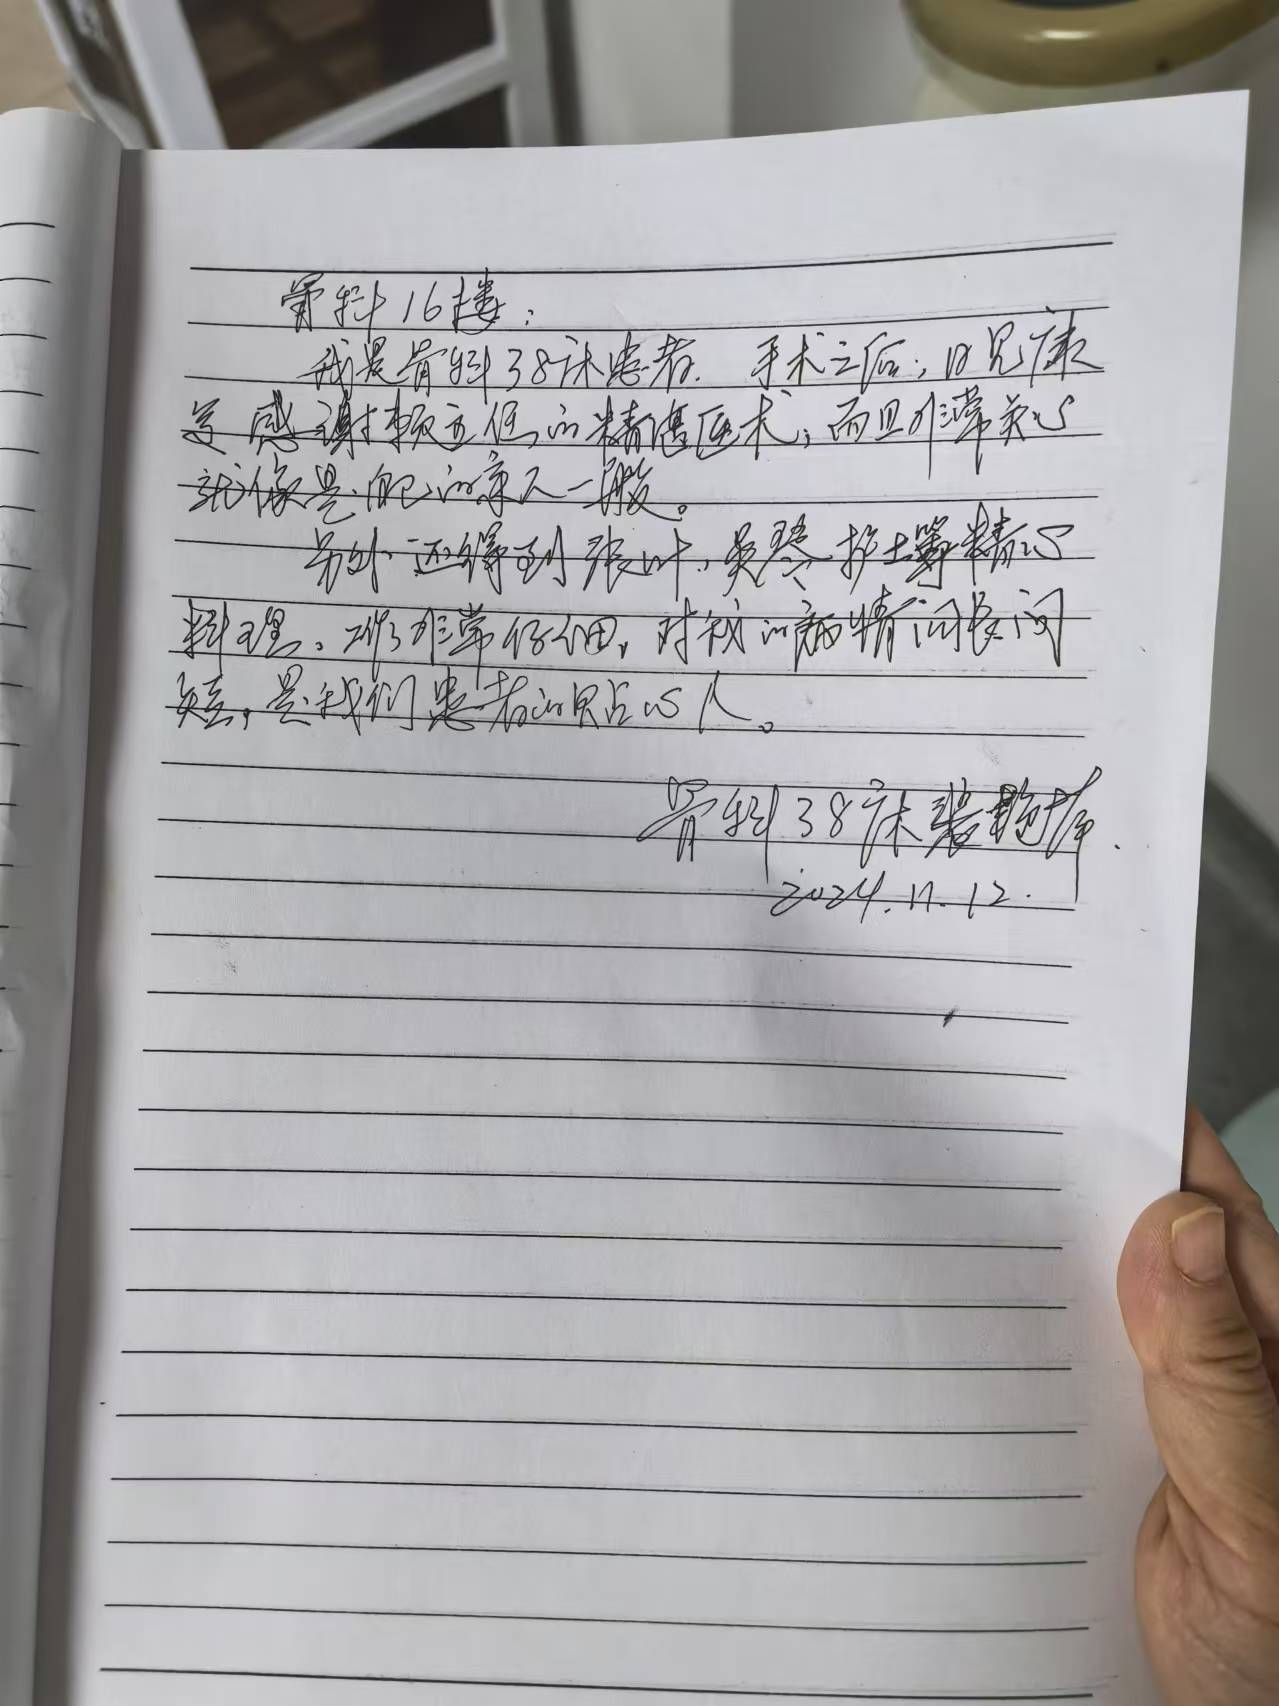 骨科16楼:
我是骨科38床患者.手术之后,日见康
复感谢顾主任的精湛医术,而且非常关心
就像是自己的家人一般。
另外还得到张叶、吴琴护士等精心
料理。工作非常仔细,对我的病情问长问
短,是我们患者的贴心人。
骨科38床
2024.11.12.